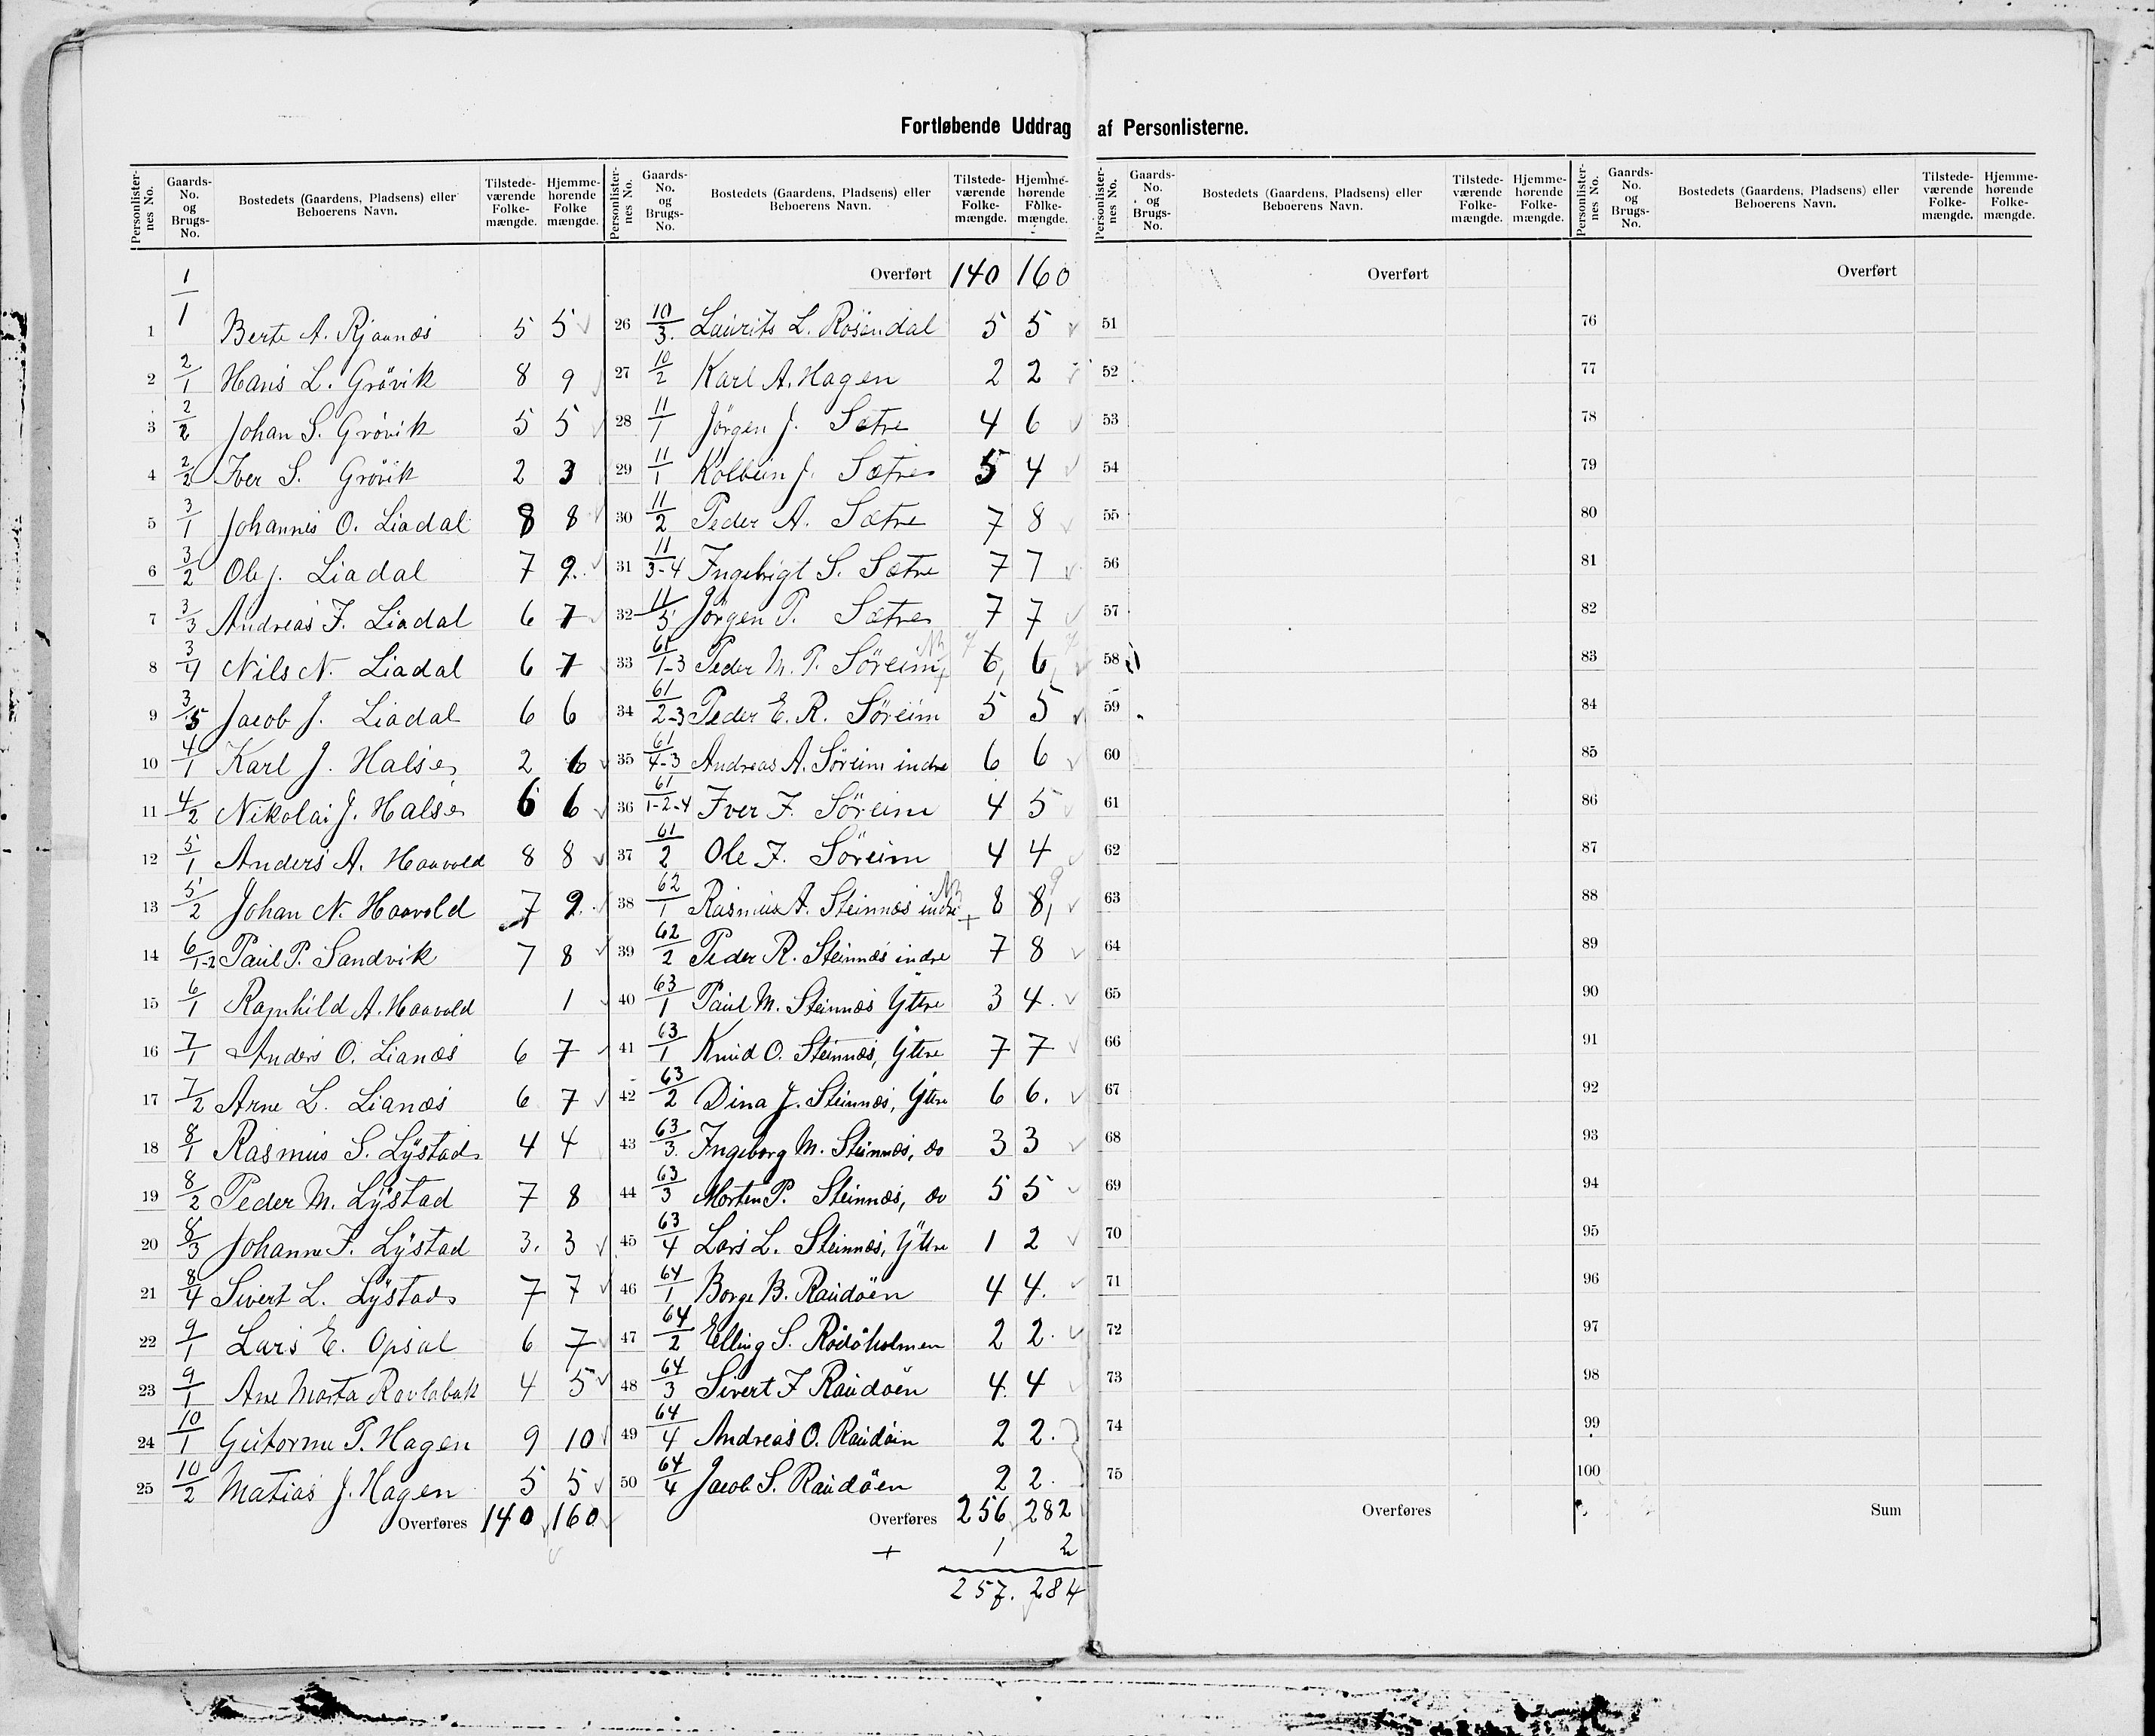 Fortløbende Uddrag af Personlisterne.
Personlisternes No. Gaards-No. og Brugs-No. Bostedets (Gaardens, Pladsens) eller Beboerens Navn. Tilstedeværende Folkemængde. Hjemmehørende Folkemængde.
1 1/1 Berte A. Rjaanæs 5 5
2 2/1 Hans L. Grövik 8 9
3 2/2 Johan S. Grövik 5 5
4 2/2 Iver S. Grövik 2 3
5 3/1 Johannes O. Liadal 8 8
6 3/2 Ole J. Liadal 7 9.
7 3/3 Andreas F. Liadal 6 7
8 3/4 Nils N. Liadal 6 7
9 3/5 Jacob J. Liadal 6 6
10 4/1 Karl J. Halse 2 6
11 4/2 Nikolai J. Halse 6 6
12 5/1 Anders A. Haavold 8 8
13 5/2 Johan N. Haavold 7 9.
14 6/1-2 Paul P. Sandvik 7 8
15 6/1 Ragnhild A. Haavold 1
16 7/1 Anders O. Lianæs 6 7
17 7/2 Arne L. Lianæs 6 7
18 8/1 Rasmus S. Lystad 4 4
19 8/2 Peder M. Lystad 7 8
20 8/3 Johanne F. Lystad 3. 3
21 8/4 Sivert L. Lystad 7 7
22 9/1 Lars E. Opsal 6 7
23 9/1 Ane Marta 4 5
24 10/1 Gutorme P. Hagen 9 10
25 10/2 Matias J. Hagen 5 5
Overføres 140 160
Personlisternes No. Gaards-No. og Brugs-No. Bostedets (Gaardens, Pladsens) eller Beboerens Navn. Tilstedeværende Folkemængde. Hjemmehørende Folkemængde.
Overført 140 160
26 10/3. Laurits L. Rosendal 5 5
27 10/2 Karl A. Hagen 2 2
28 11/1 Jörgen J. Sætre 4 6
29 11/1 Kolbein J. Sætre 5 4
30 11/2 Peder A. Sætre 7 8
31 11/3-4 Ingebrigt S. Sætre 7 7
32 11/5 Jörgen P. Sætre 7 7
33 61/1-3 Peder M. P. Söreim NB 7 6, 6, 7
34 61/2-3 Peder E. R. Söreim 5 5
35 61/4-3 Andreas A. Söreim indre 6 6
36 61/1-2-4 Iver F. Söreim 4 5
37 61/2 Ole F. Söreim 4 4
38 62/1 Rasmus A. Steinnæs indre NB + 8 8, 9
39 62/2 Peder R. Steinnæs indre 7 8
40 63/1 Paul M. Steinnæs Yttre 3 4.
41 63/1 Knud O. Steinnæs, Yttre 7 7
42 63/2 Dina J. Steinnæs, Yttre 6 6.
43 63/3. Ingeborg M. Steinnæs, do 3 3
44 63/3 Morten P. Steinnæs, do 5 5
45 63/4 Lars L. Steinnæs, Yttre 1 2
46 64/1 Borge B. Raudöen 4 4.
47 64/2 Elling S. Rödöholmen 2 2.
48 64/3 Sivert F Raudöen 4. 4
49 64/4 Andreas O. Raudöen 2 2.
50 64/4 Jacob S. Raudöen 2 2.
Overføres 256 282
+ 1 2
257. 284
Personlisternes No. Gaards-No. og Brugs-No. Bostedets (Gaardens, Pladsens) eller Beboerens Navn. Tilstedeværende Folkemængde. Hjemmehørende Folkemængde.
Overført
51
52
53
54
55
56
57
58
59
60
61
62
63
64
65
66
67
68
69
70
71
72
73
74
75
Overføres
Personlisternes No. Gaards-No. og Brugs-No. Bostedets (Gaardens, Pladsens) eller Beboerens Navn. Tilstedeværende Folkemængde. Hjemmehørende Folkemængde.
Overført
76
77
78
79
80
81
82
83
84
85
86
87
88
89
90
91
92
93
94
95
96
97
98
99
100
Sum